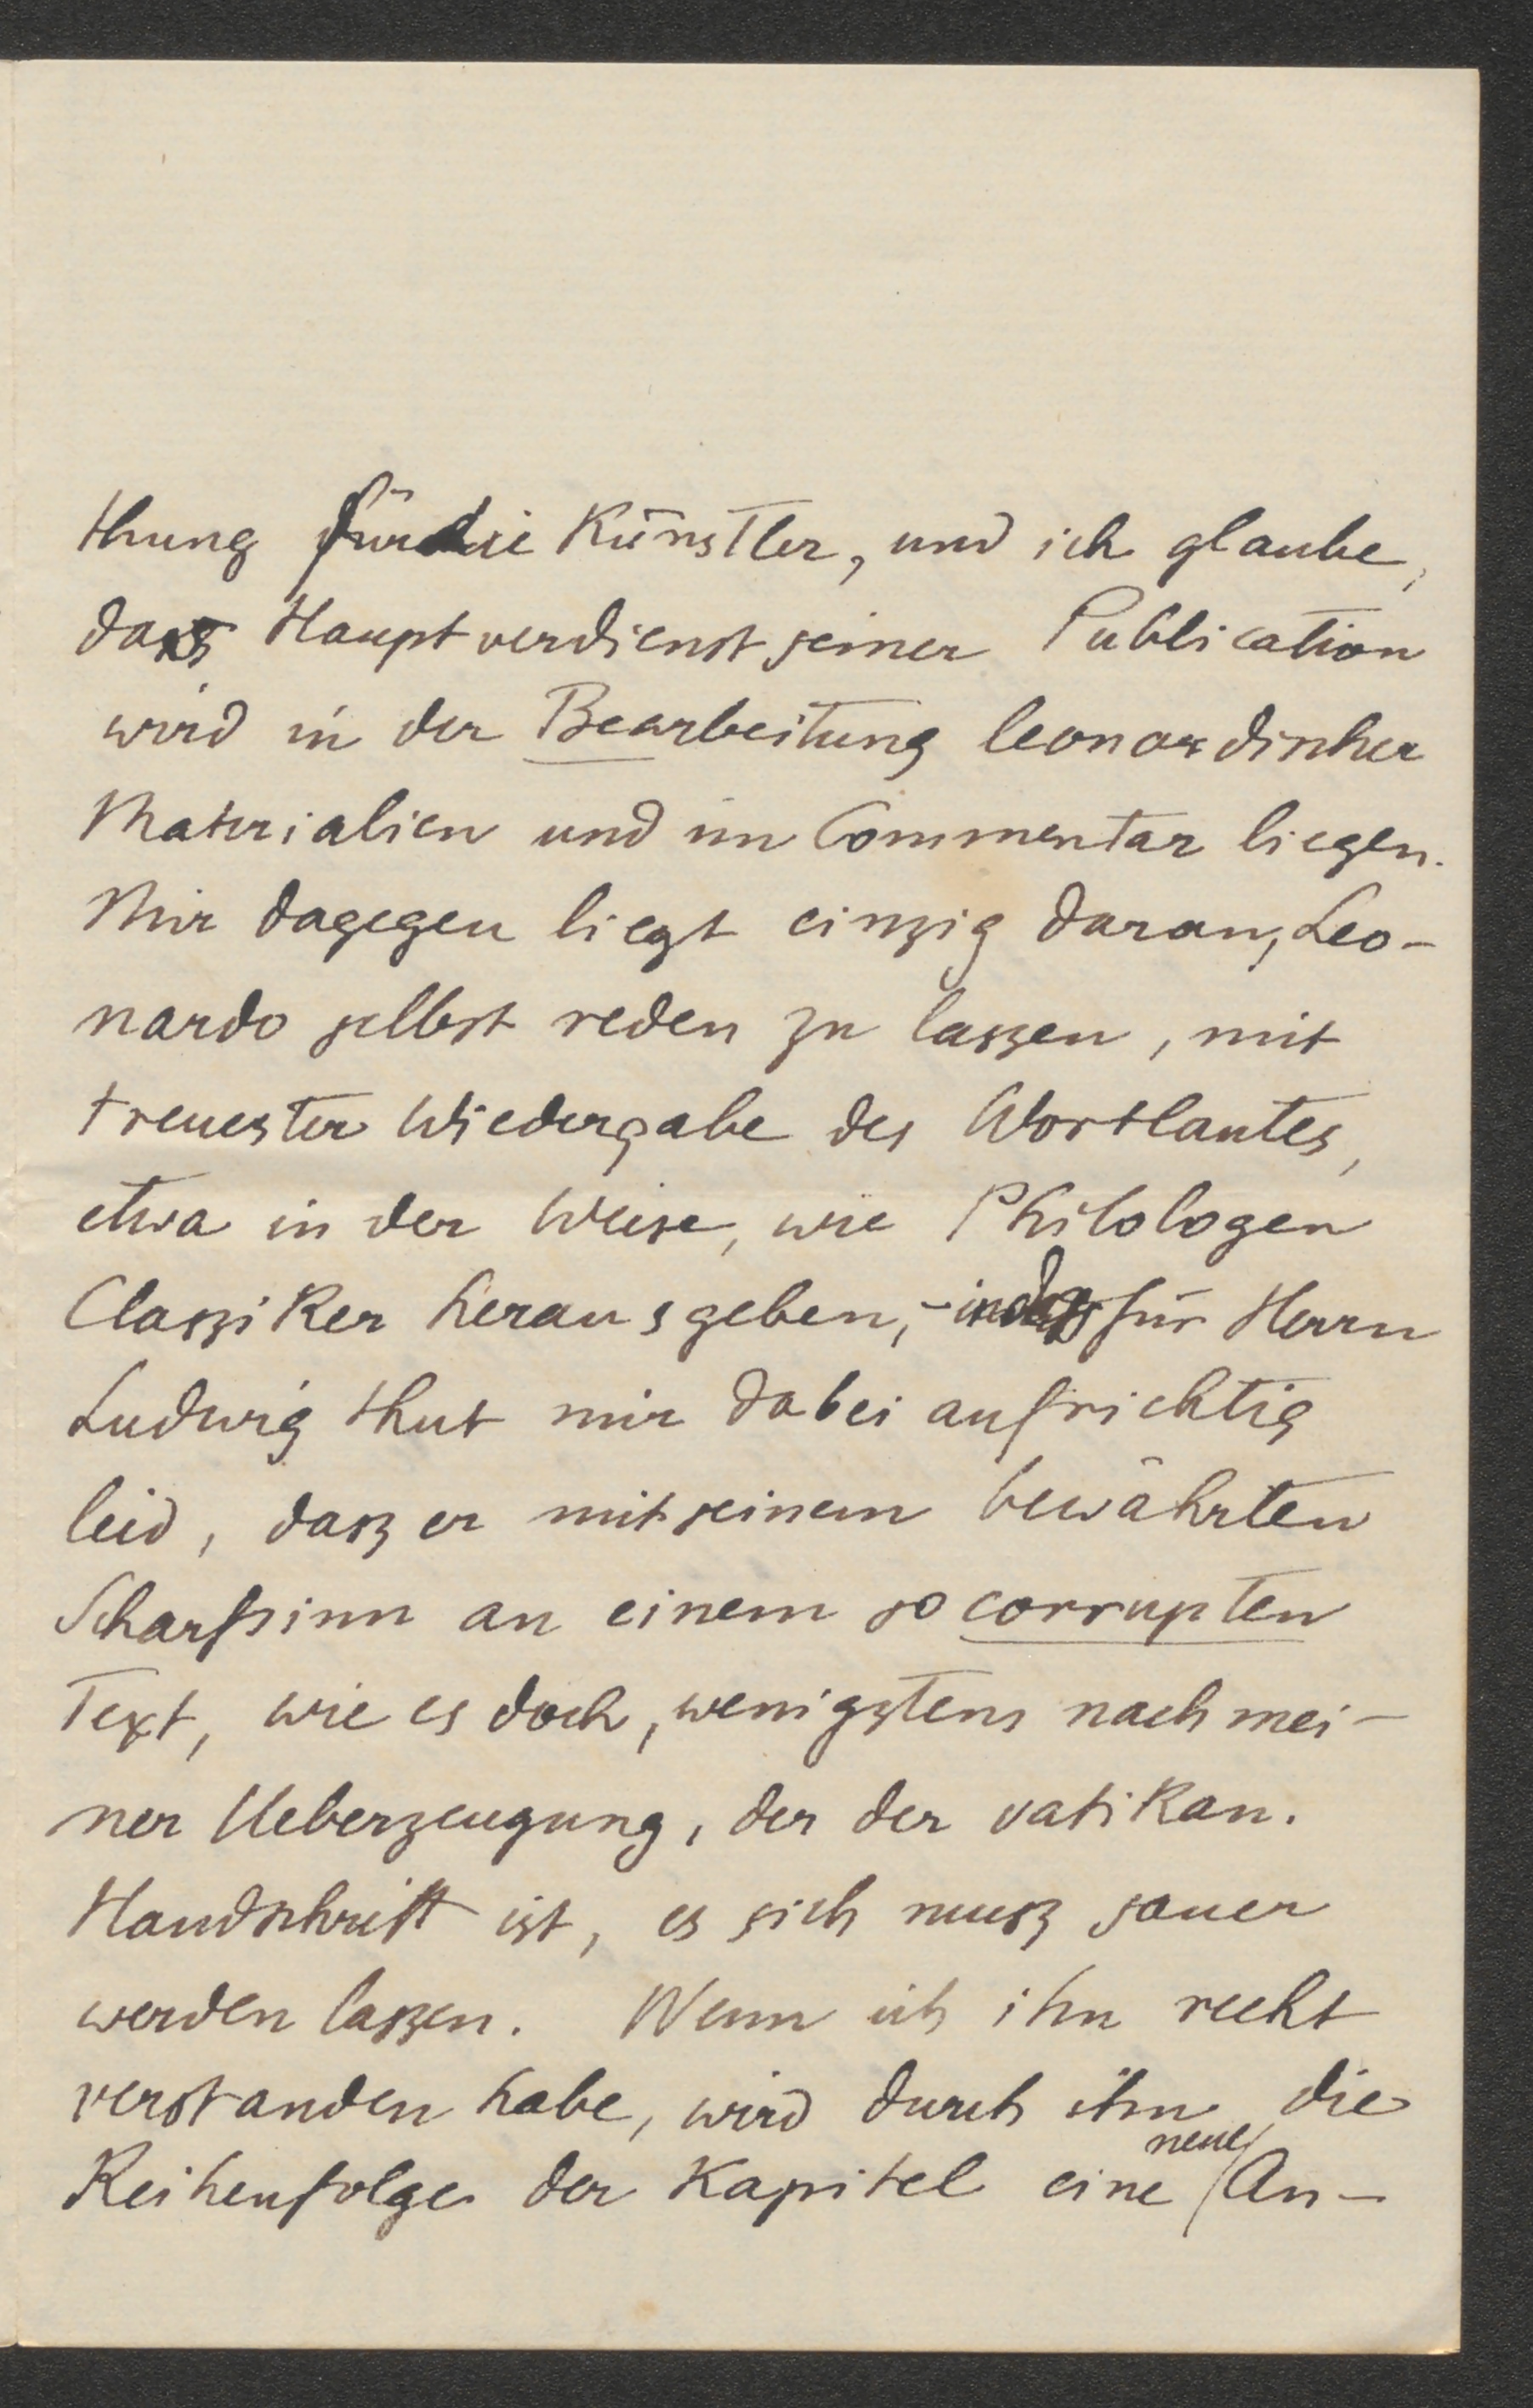 thung für die Künstler, und ich glaube,
das Hauptverdienst seiner Publication
wird in der Bearbeitung leonardischer
Materialien und im Commentar liegen.
Mir dagegen liegt einzig daran, Leo-
nardo selbst reden zu laszen, mit
treuester Wiedergabe des Wortlautes,
etwa in der Weise, wie Philologen
Clasziker herausgeben, - für Herrn
Ludwig thut mir dabei aufrichtig
leid, dasz er mit seinem bewährten
Scharfsinn an einem so corrupten
Text, wie es doch, wenigstens nach mei-
ner Ueberzeugung, der der vatikan.
Handschrift ist, es sich musz sauer
werden laszen. Wenn ich ihn recht
verstanden habe, wird durch ihn die
Reihenfolge der Kapitel eine neue An-